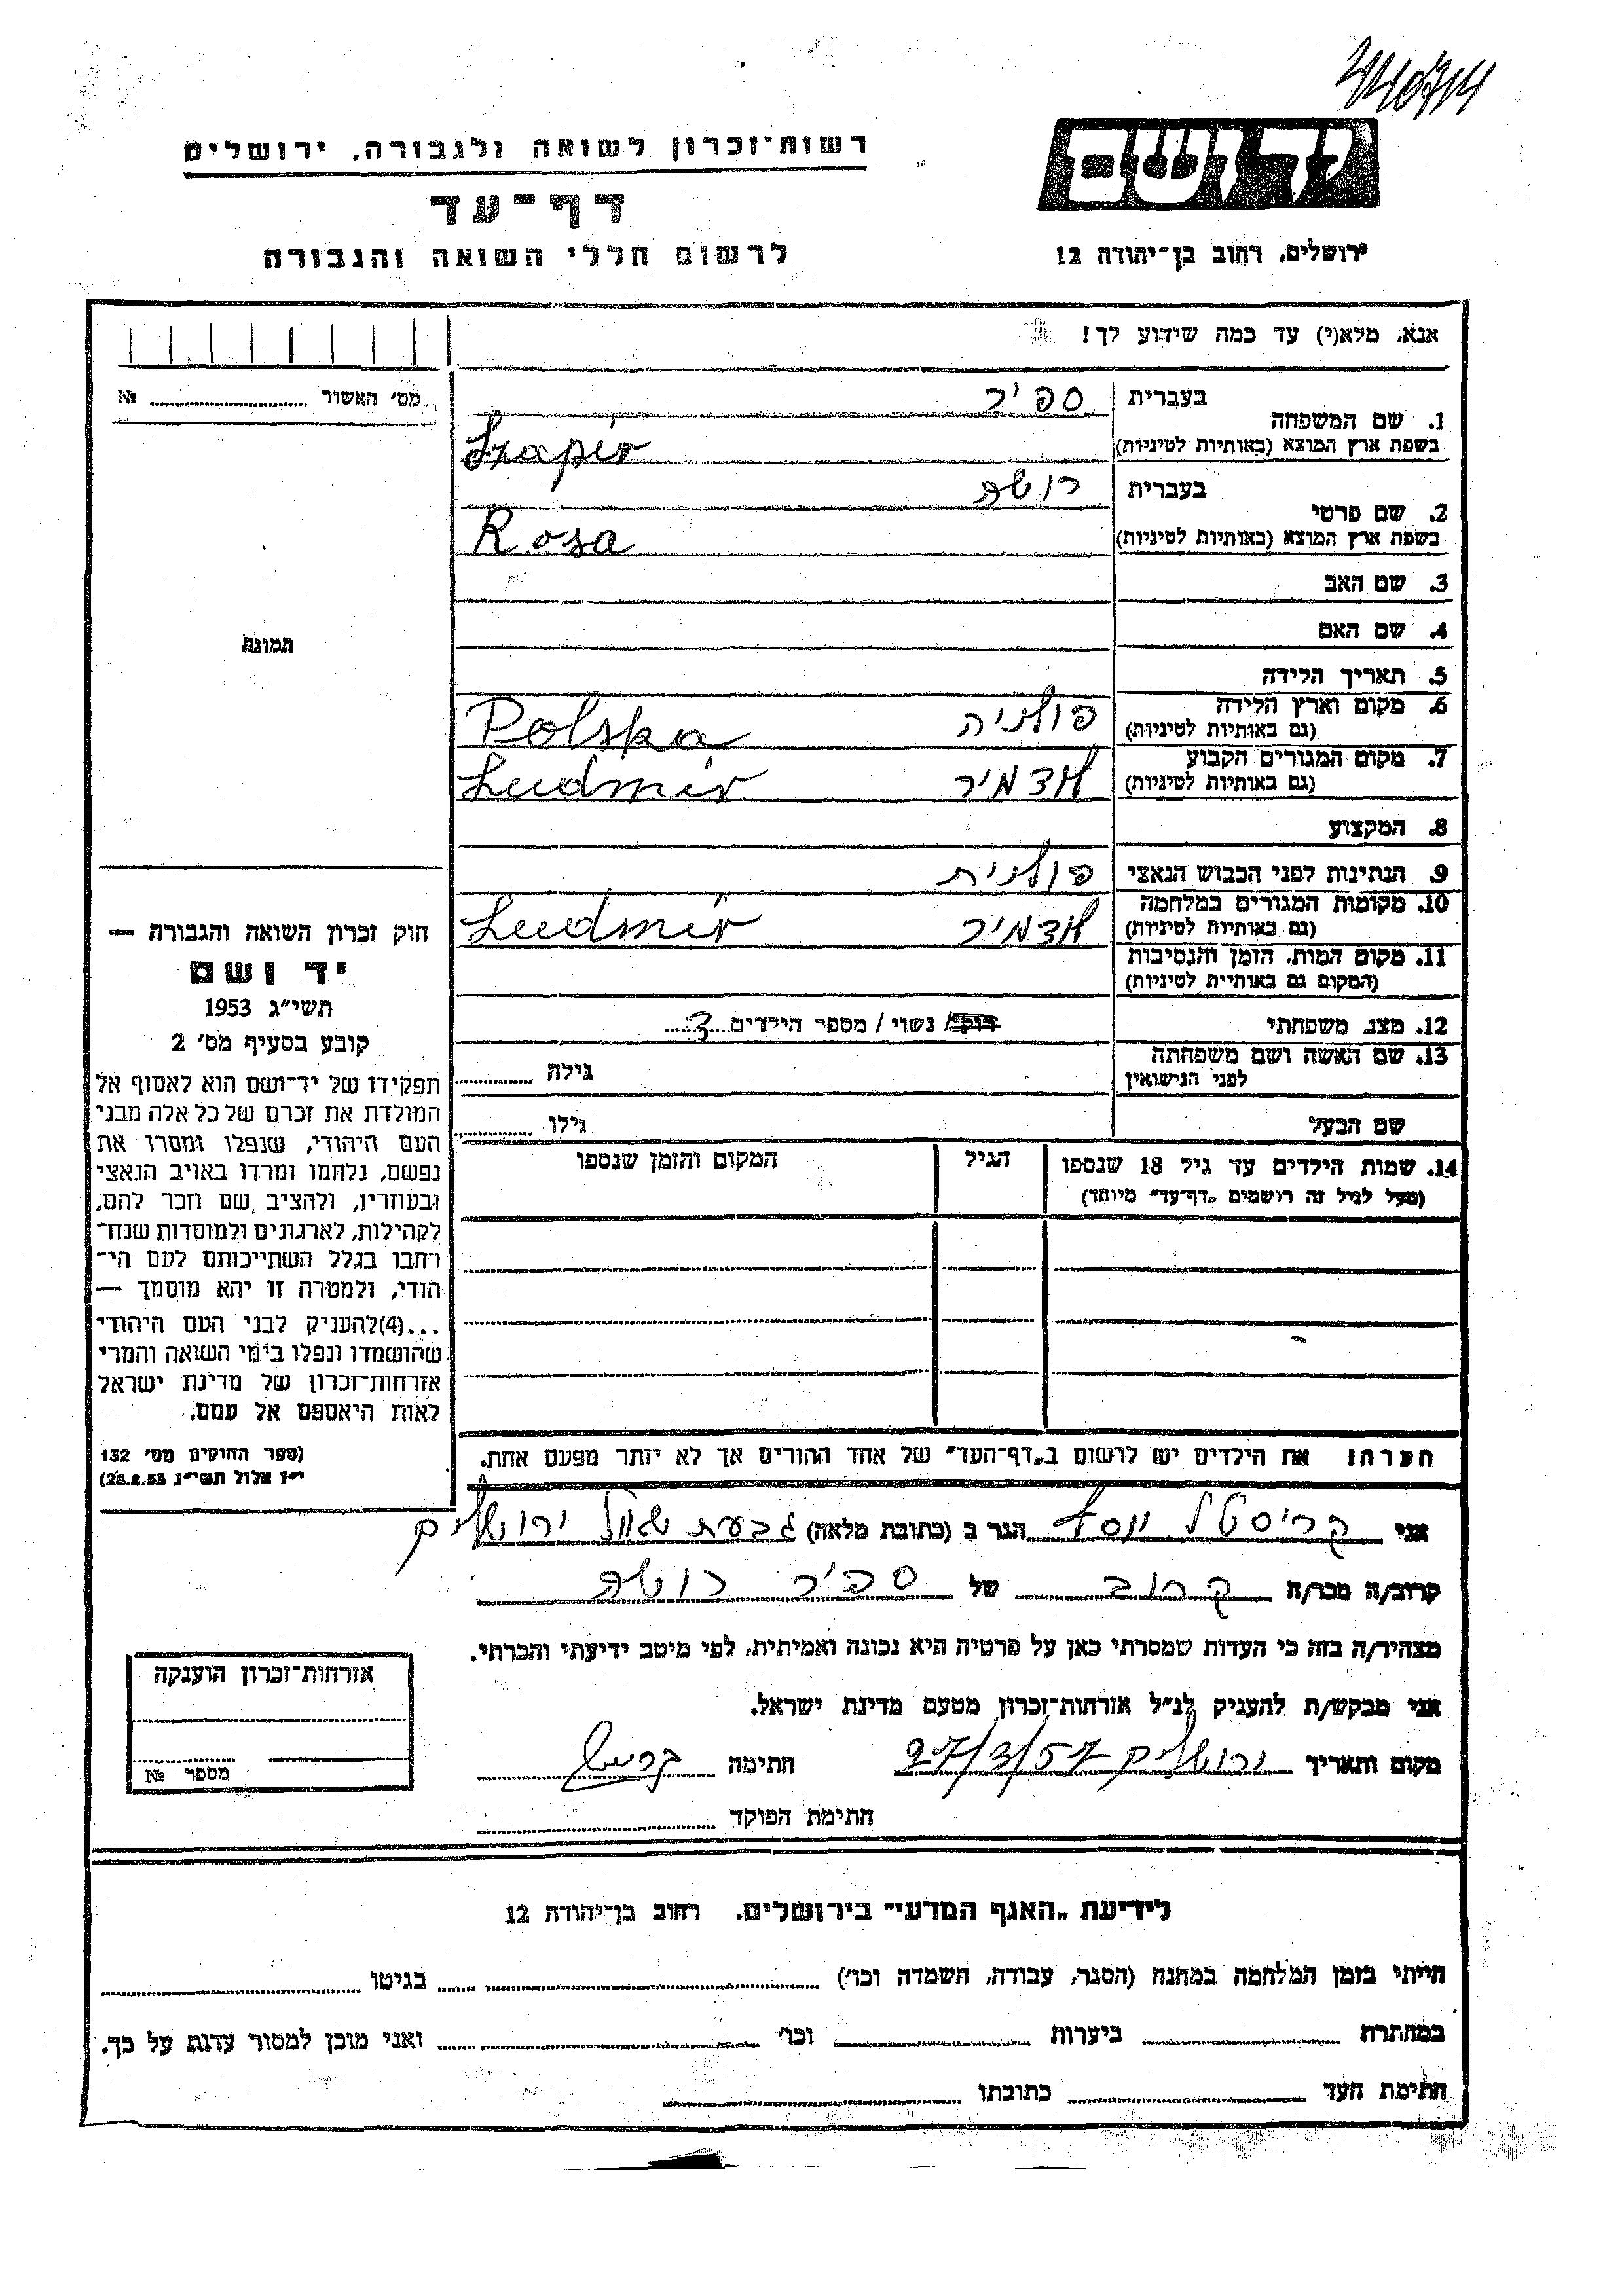 רשות־זכרון לשואה ולגבורה, ירושלים
דף־עד
לרשום חללי השואה והגבורה
ירושלים, רחוב בן־יהודה 12
אנא, מלא(י) עד כמה שידוע לך!
מס' האשור № ....................
תמונה
1. שם המשפחה
בעברית ספיר
בשפת ארץ המוצא (באותיות לטיניות) Szapir
2. שם פרטי
בעברית רוזה
בשפת ארץ המוצא (באותיות לטיניות) Rosa
3. שם האב
4. שם האם
5. תאריך הלידה
6. מקום וארץ הלידה
(גם באותיות לטיניות) פולניה Polska
7. מקום המגורים הקבוע
(גם באותיות לטיניות) לודמיר Ludmir
8. המקצוע
9. הנתינות לפני הכבוש הנאצי פולנית
10. מקומות המגורים במלחמה
(גם באותיות לטיניות) לודמיר Ludmir
11. מקום המות, הזמן והנסיבות
(המקום גם באותיות לטיניות)
12. מצב משפחתי רוק/ נשוי / מספר הילדים 3
13. שם האשה ושם משפחתה
לפני הנישואין
גילה
שם הבעל גילו
14. שמות הילדים עד גיל 18 שנספו
(מעל לגיל זה רושמים „דף־עד" מיוחד)
הגיל
המקום והזמן שנספו
הערה! את הילדים יש לרשום ב„דף־העד" של אחד ההורים אך לא יותר מפעם אחת.
חוק זכרון השואה והגבורה —
יד ושם
תשי"ג 1953
קובע בסעיף מס' 2
תפקידו של יד־ושם הוא לאסוף אל
המולדת את זכרם של כל אלה מבני
העם היהודי, שנפלו ומסרו את
נפשם, נלחמו ומרדו באויב הנאצי
ובעוזריו, ולהציב שם וזכר להם,
לקהילות, לארגונים ולמוסדות שנח־
רחבו בגלל השתייכותם לעם הי־
הודי, ולמטרה זו יהא מוסמך —
...(4)להעניק לבני העם היהודי
שהושמדו ונפלו בימי השואה והמרי
אזרחות־זכרון של מדינת ישראל
לאות היאספם אל עמם.
(ספר החוקים מס' 132
י"ז אלול תשי"ג 28.8.53)
אני קריסטל יוסף הגר ב (כתובת מלאה) גבעת שאול ירושלים
קרוב/ה מכר/ה קרוב של ספיר רוזה
מצהיר/ה בזה כי העדות שמסרתי כאן על פרטיה היא נכונה ואמיתית, לפי מיטב ידיעתי והכרתי.
אני מבקש/ת להעניק לנ"ל אזרחות־זכרון מטעם מדינת ישראל.
מקום ותאריך ירושלים 27/3/57 חתימה
חתימת הפוקד
אזרחות־זכרון הוענקה
מספר №
לידיעת „האגף המדעי" בירושלים, רחוב בן־יהודה 12
הייתי בזמן המלחמה במחנה (הסגר, עבודה, השמדה וכו') בגיטו
במחתרת ביערות וכו' ואני מוכן למסור עדות על כך.
חתימת העד כתובתו